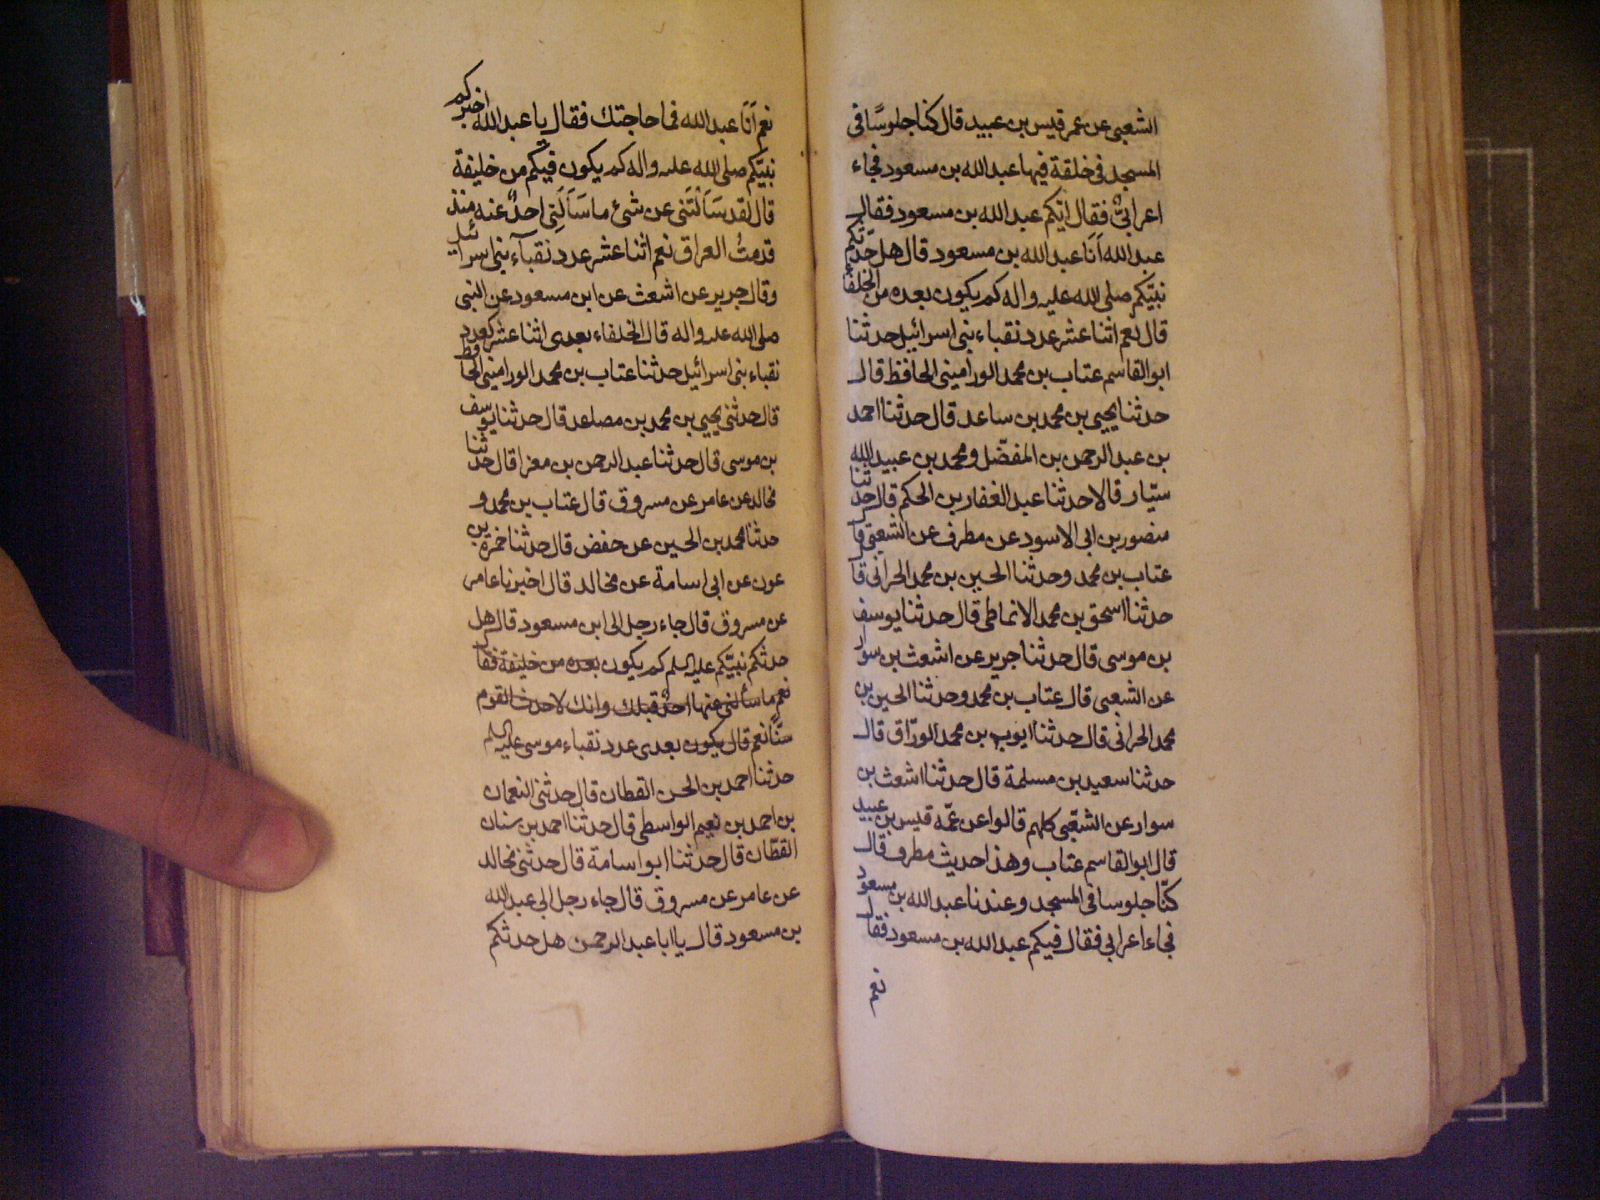 الشعبى عن عمر قيس بن عبيد قال كنا جلوسًا فى
المسجد فى خلقة فيها عبدالله بن مسعود فجاء
اعرابىٌّ فقال ايّكم عبدالله بن مسعود فقال
عبدالله اَنَا عبدالله بن مسعود قال هل حدّثكم
نبيّكم صلى الله عليه واله كم يكون بعده من الخلفا
قال نعم اثنا عشر عدد نقباء بنى اسرائيل حدثنا
ابوالقاسم عتاب بن محمد الورامينى الحافظ قال
حدثنا يحيى بن محمد بن ساعد قال حدثنا احمد
بن عبد الرحمن بن المفضّل ومحمد بن عبيدالله
سيّار قالا حدثنا عبد الغفار بن الحكم قال حدثنا
منصور بن ابى الاسود عن مطرف عن الشعبى قا
عتاب بن محمد وحدثنا الحسين بن محمد الحرانى قا
حدثنا اسحق بن محمد الانماطى قال حدثنا يوسف
بن موسى قال حدثنا جرير عن اشعث بن سوار
عن الشعبى قال عتاب بن محمد وحدثنا الحسين بن
محمد الحرانى قال حدثنا ايوب بن محمد الورّاق قال
حدثنا سعيد بن مسلمة قال حدثنا اشعث بن
سوار عن الشعبى كلهم قالوا عن عمّه قيس بن عبيد
قال ابوالقاسم عتاب وهذا حديث مطرف قال
كنّا جلوسا فى المسجد وعندنا عبدالله بن مسعود
فجاء اعرابى فقال فيكم عبدالله بن مسعود فقال
نعم
نعم اَنَا عبدالله فما حاجتك فقال يا عبدالله اخبركم
نبيّكم صلى الله عليه واله كم يكون فيكم من خليفة
قال لقد سَاَلْتَنى عن شئ ما سَاَلَنِى احدٌ عنه منذ
قدمتُ العراق نعم اثنا عشر عدد نقبآء بنى اسرائيل
وقال جرير عن اشعث عن ابن مسعود عن النبى
صلى الله عليه واله قال الخلفاء بعدى اثنا عشر كعدد
نقباء بنى اسرائيل حدثنا عتاب بن محمد الورامينى الحافظ
قال حدثنى يحيى بن محمد بن مصاعد قال حدثنا يوسف
بن موسى قال حدثنا عبدالرحمن بن مغرا قال حدثنا
مخالد عن عامر عن مسروق قال عتاب بن محمد و
حدثنا محمد بن الحسين عن حفض قال حدثنا حمزة بن
عون عن ابى اسامة عن مخالد قال اخبرنا عامر
عن مسروق قال جاء رجل الى ابن مسعود قال هل
حدثكم نبيّكم عليه السلم كم يكون بعده من خليفة فقال
نعم ما سألنى عنها احد قبلك وانك لاحدث القوم
سنًّا نعم قال يكون بعدى عدد نقباء موسى عليه السلم
حدثنا احمد بن الحسن القطان قال حدثنى النعمان
بن احمد بن نعيم الواسطى قال حدثنا احمد بن سنان
القطّان قال حدثنا ابواسامة قال حدثنى مخالد
عن عامر عن مسروق قال جاء رجل الى عبدالله
بن مسعود قال يا ابا عبدالرحمن هل حدثكم